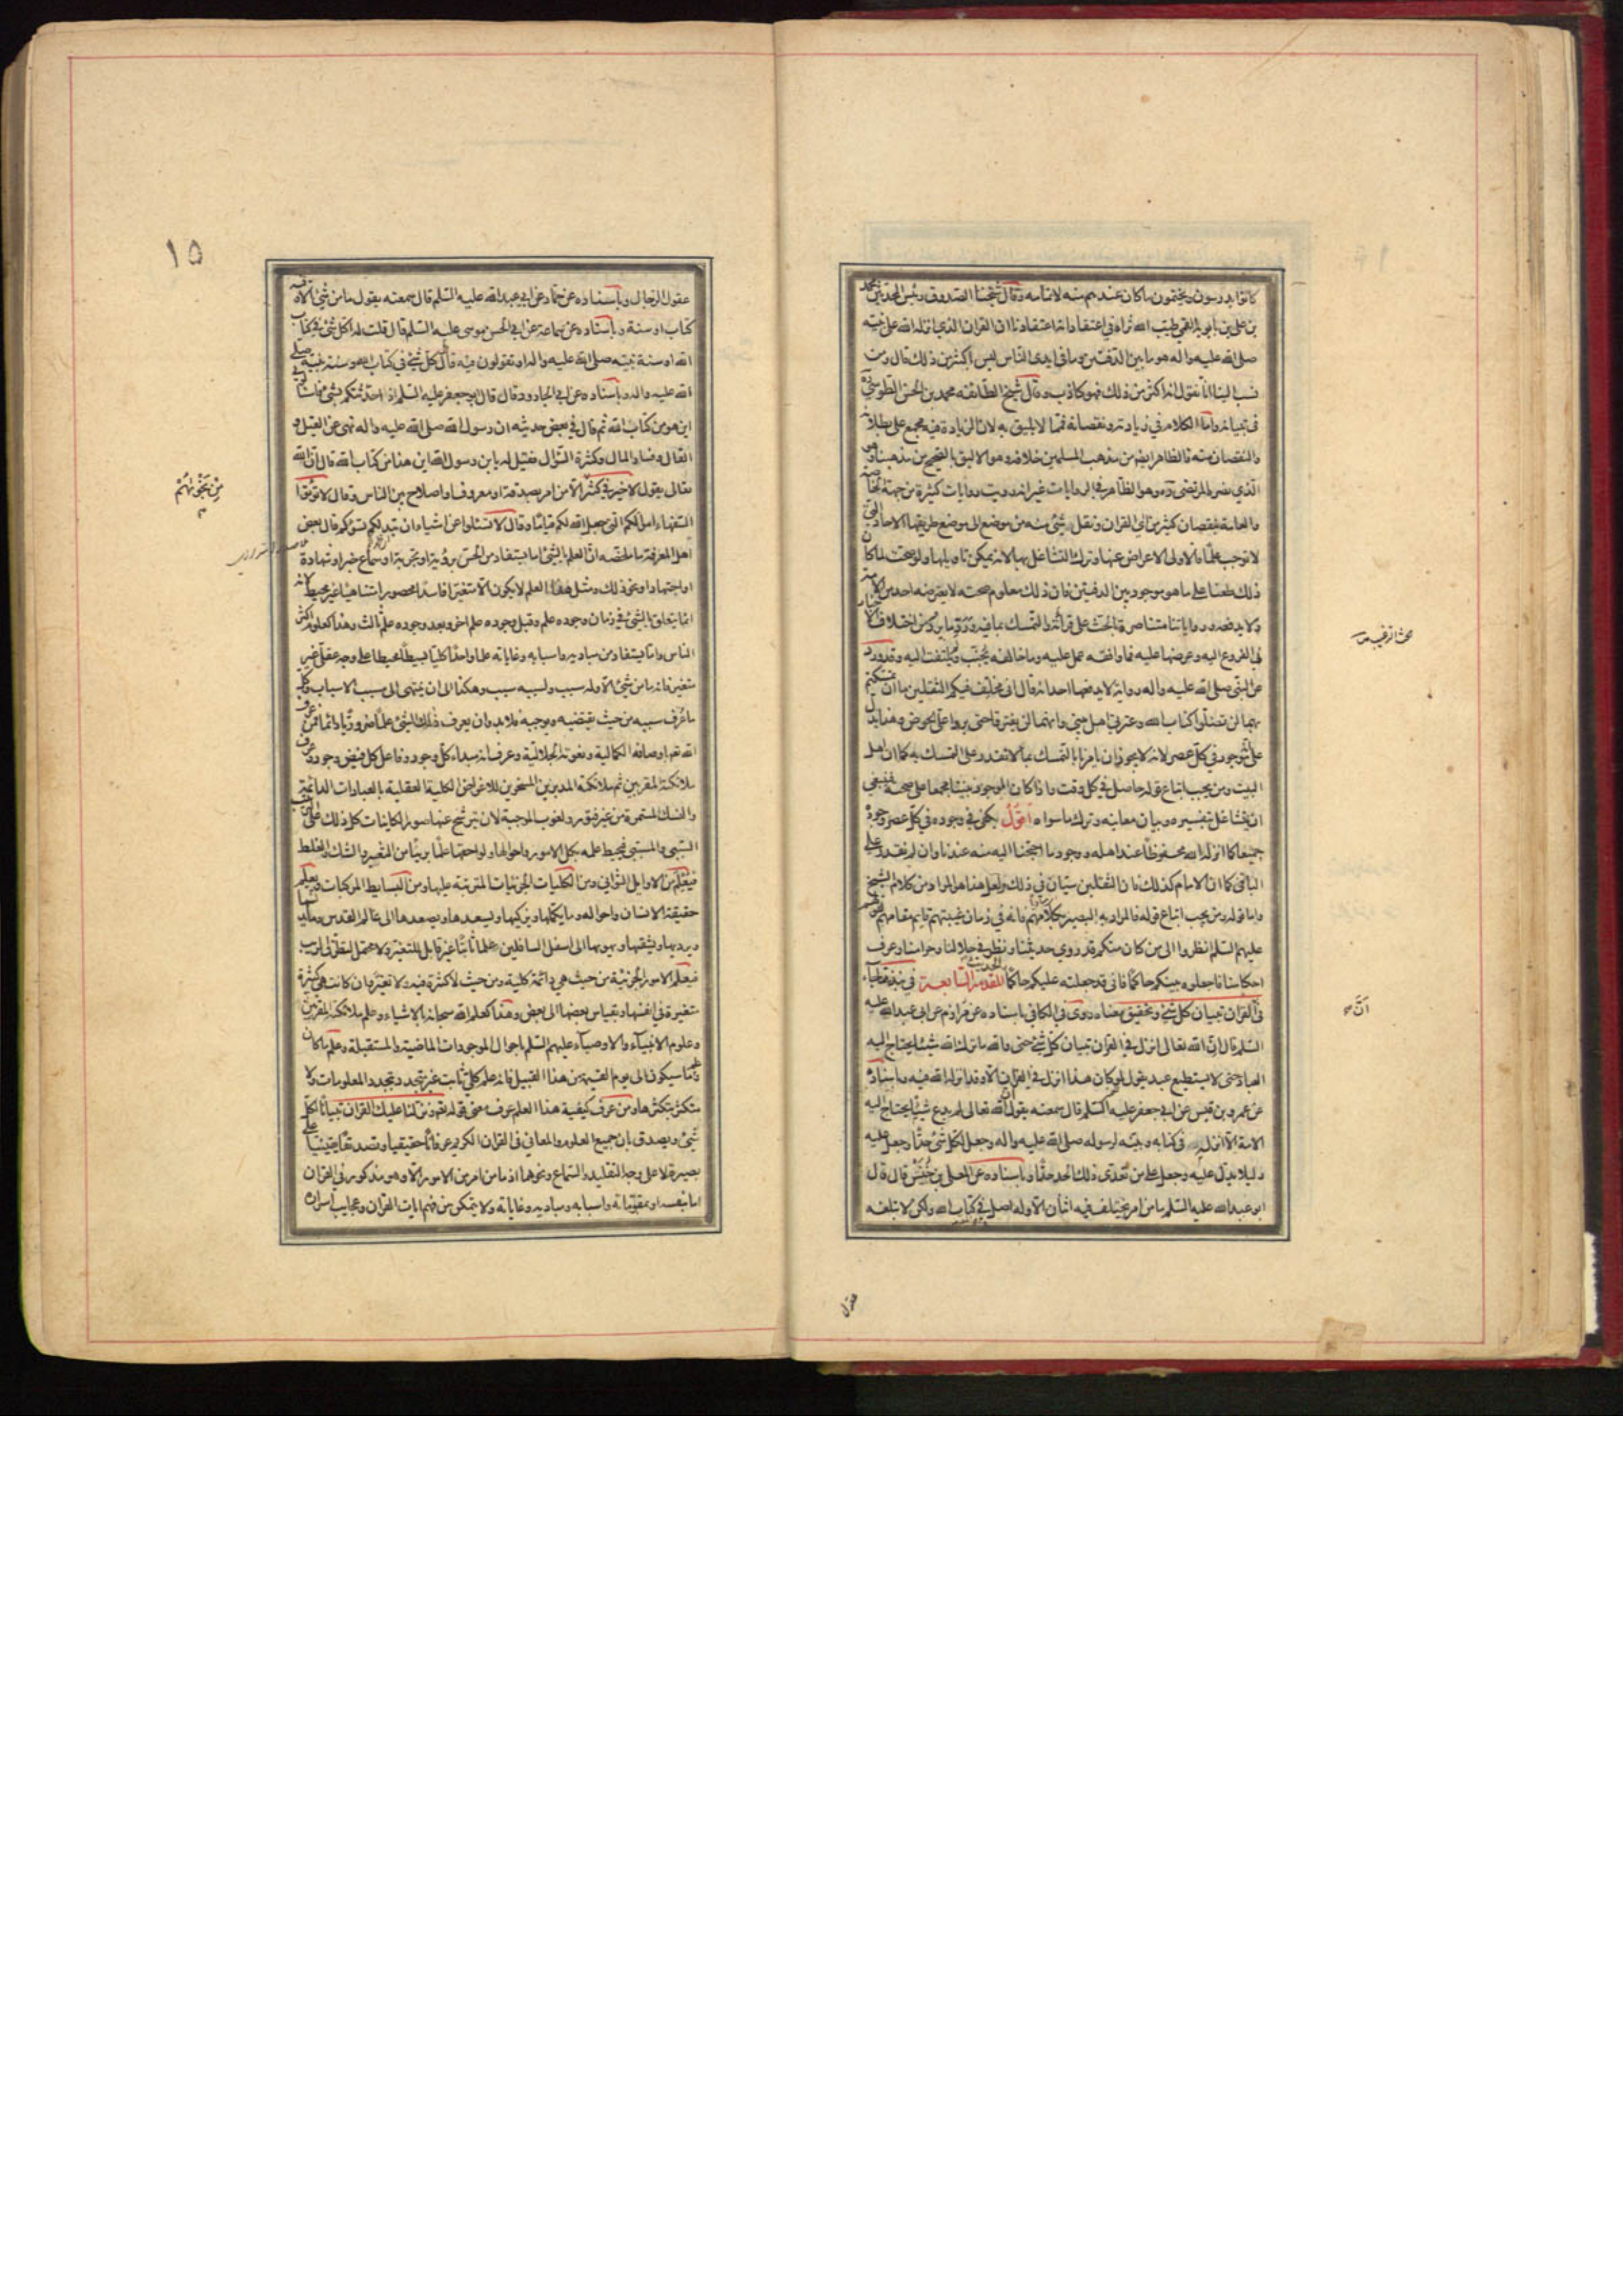 كانوا يدرسون ويختمون ما كان عندهم منه لاتمامه وقال شيخنا الصدوق رئيس المحدثين محمد
بن علي بن بابويه القمي طيب الله ثراه في اعتقاداته اعتقادنا ان القران الذي انزله الله على نبيه
صلى الله عليه واله هو ما بين الدفتين وما في ايدي الناس ليس اكثر من ذلك قال ومن
نسب الينا انا نقول انه اكثر من ذلك فهو كاذب وقال شيخ الطائفة محمد بن الحسن الطوسي ره
في تبيانه واما الكلام في زيادته ونقصانه فمما لا يليق به لان الزيادة فيه مجمع على بطلانه
والنقصان منه فالظاهر ايضا من مذهب المسلمين خلافه وهو الاليق بالصحيح من مذهبنا وهو
الذي نصره المرتضى ره وهو الظاهر في الروايات غير انه رويت روايات كثيرة من جهة الخاصة
والعامة بنقصان كثير من اي القران ونقل شيء منه من موضع الى موضع طريقها الاحاد التي
لا توجب علما فالاولى الاعراض عنها وترك التشاغل بها لانه يمكن تاويلها ولو صحت لما كان
ذلك طعنا على ما هو موجود بين الدفتين فان ذلك معلوم صحته لا يعترضه احد من الامة
ولا يدفعه ورواياتنا متناصرة بالحث على قرائته والتمسك بما فيه ورد ما يرد من اختلاف الاخبار
في الفروع اليه وعرضها عليه فما وافقه عمل عليه وما خالفه يجنب ولم يلتفت اليه وقد ورد
عن النبي صلى الله عليه واله رواية لا يدفعها احد انه قال اني مخلف فيكم الثقلين ما ان تمسكتم
بهما لن تضلوا كتاب الله وعترتي اهل بيتي وانهما لن يفترقا حتى يردا علي الحوض وهذا يدل
على انه موجود في كل عصر لانه لا يجوز ان يامرنا بالتمسك بما لا نقدر على التمسك به كما ان اهل
البيت ومن يجب اتباع قوله حاصل في كل وقت واذا كان الموجود بيننا مجمعا على صحته فينبغي
ان نتشاغل بتفسيره وبيان معانيه وترك ما سواه اقول يكفي في وجوده في كل عصر وجوده
جميعا كما انزله الله محفوظا عند اهله ووجود ما احتجنا اليه منه عندنا وان لم نقدر على
الباقي كما ان الامام كذلك فان الثقلين سيان في ذلك ولعل هذا هو المراد من كلام الشيخ
واما قوله ومن يجب اتباع قوله فالمراد به البصير بكلامهم فانه في زمان غيبتهم قايم مقامهم لقولهم
عليهم السلم انظروا الى من كان منكم قد روى حديثنا ونظر في حلالنا وحرامنا وعرف
احكامنا فاجعلوه بينكم حاكما فاني قد جعلته عليكم حاكما الحديث المقدمة السابعة في نبذ مما جاء
في ان القران تبيان كل شيء وتحقيق معناه روى في الكافي باسناده عن مرازم عن ابي عبد الله عليه
السلم قال ان الله تعالى انزل في القران تبيان كل شيء حتى والله ما ترك الله شيئا يحتاج اليه
العباد حتى لا يستطيع عبد يقول لو كان هذا انزل في القران الا وقد انزله الله فيه وباسناده
عن عمرو بن قيس عن ابي جعفر عليه السلم قال سمعته يقول ان الله تعالى لم يدع شيئا يحتاج اليه
الامة الا انزله في كتابه وبينه لرسوله صلى الله عليه واله وجعل لكل شيء حدا وجعل عليه
دليلا يدل عليه وجعل على من تعدى ذلك الحد حدا وباسناده عن المعلى بن خنيس قال قال
ابو عبد الله عليه السلم ما من امر يختلف فيه اثنان الا وله اصل في كتاب الله ولكن لا تبلغه
عقول
انَّ
١٥
عقول الرجال وباسناده عن حماد عن ابي عبد الله عليه السلم قال سمعته يقول ما من شيء الا وفيه
كتاب او سنة وباسناده عن سماعة عن ابي الحسن موسى عليه السلم قال قلت له اكل شيء في كتاب
الله او سنة نبيه صلى الله عليه واله او تقولون فيه قال كل شيء في كتاب الله وسنة نبيه صلى
الله عليه واله وباسناده عن ابي الجارود قال قال ابو جعفر عليه السلم اذا حدثتكم بشيء فاسئلوني
اين هو من كتاب الله ثم قال في بعض حديثه ان رسول الله صلى الله عليه واله نهى عن القيل و
القال وفساد المال وكثرة السؤال فقيل له يا بن رسول الله اين هذا من كتاب الله قال ان الله
تعالى يقول لا خير في كثير الا من امر بصدقة او معروف او اصلاح بين الناس وقال لا تؤتوا
السفهاء اموالكم التي جعل الله لكم قياما وقال لا تسئلوا عن اشياء ان تبد لكم تسؤكم قال بعض
اهل المعرفة ما ملخصه ان العلم بالشيء اما يستفاد من الحس برؤية او تجربة او سماع خبر او شهادة
او اجتهاد او نحو ذلك ومثل هذا العلم لا يكون الا متغيرا فاسدا محصورا متناهيا غير محيط لانه
انما يتعلق بالشيء في زمان وجوده علم وقبل وجوده علم اخر وبعد وجوده علم ثالث وهذا كعلوم اكثر
الناس واما يستفاد من مباديه واسبابه وغاياته علما واحدا كليا بسيطا محيطا على وجه عقلي غير
متغير فانه ما من شيء الا وله سبب ولسببه سبب وهكذا الى ان ينتهي الى مسبب الاسباب وكل
ما عرف سببه من حيث يقتضيه ويوجبه فلا بد وان يعرف ذلك الشيء علما ضروريا دائما فمن عرف
الله تعالى باوصافه الكمالية ونعوته الجلالية وعرف انه مبداء كل وجود وفاعل كل فيض وجود وعرف
ملائكته المقربين ثم ملائكته المدبرين المسخرين للاغراض الكلية العقلية بالعبادات الدائمة
والنسك المستمرة من غير فتور ولغوب الموجبة لان يترشح عنها صور الكاينات كل ذلك على الترتيب
السببي والمسببي فيحيط علمه بكل الامور واحوالها ولواحقها علما بريئا من التغير والشك والغلط
فيعلم من الاوايل الثواني ومن الكليات الجزئيات المترتبة عليها ومن البسايط المركبات ويعلم
حقيقة الانسان واحواله وما يكملها ويزكيها ويسعدها ويصعدها الى عالم القدس وما يدنسها
ويرديها ويشقيها ويهويها الى اسفل السافلين علما ثابتا غير قابل للتغير ولا محتمل لتطرق الريب
فيعلم الامور الجزئية من حيث هي دائمة كلية ومن حيث لا كثرة فيه ولا تغير وان كانت هي كثيرة
متغيرة في انفسها وبقياس بعضها الى بعض وهذا كعلم الله سبحانه بالاشياء وعلم ملائكته المقربين
وعلوم الانبياء والاوصياء عليهم السلم باحوال الموجودات الماضية والمستقبلة وعلم ما كان
وعلم ما سيكون الى يوم القيمة من هذا القبيل فانه علم كلي ثابت غير متجدد بتجدد المعلومات ولا
متكثر بتكثرها ومن عرف كيفية هذا العلم عرف معنى قوله تعالى ونزلنا عليك القران تبيانا لكل
شيء ويصدق بان جميع العلوم والمعاني في القران الكريم عرفانا حقيقيا وتصديقا يقينيا على
بصيرة لا على وجه التقليد والسماع ونحوهما اذ ما من امر من الامور الا وهو مذكور في القران
اما بنفسه او بمقوماته واسبابه ومباديه وغاياته ولا يتمكن من فهم ايات القران وعجايب اسراره
مِن نَجْوَيٰهُمْ